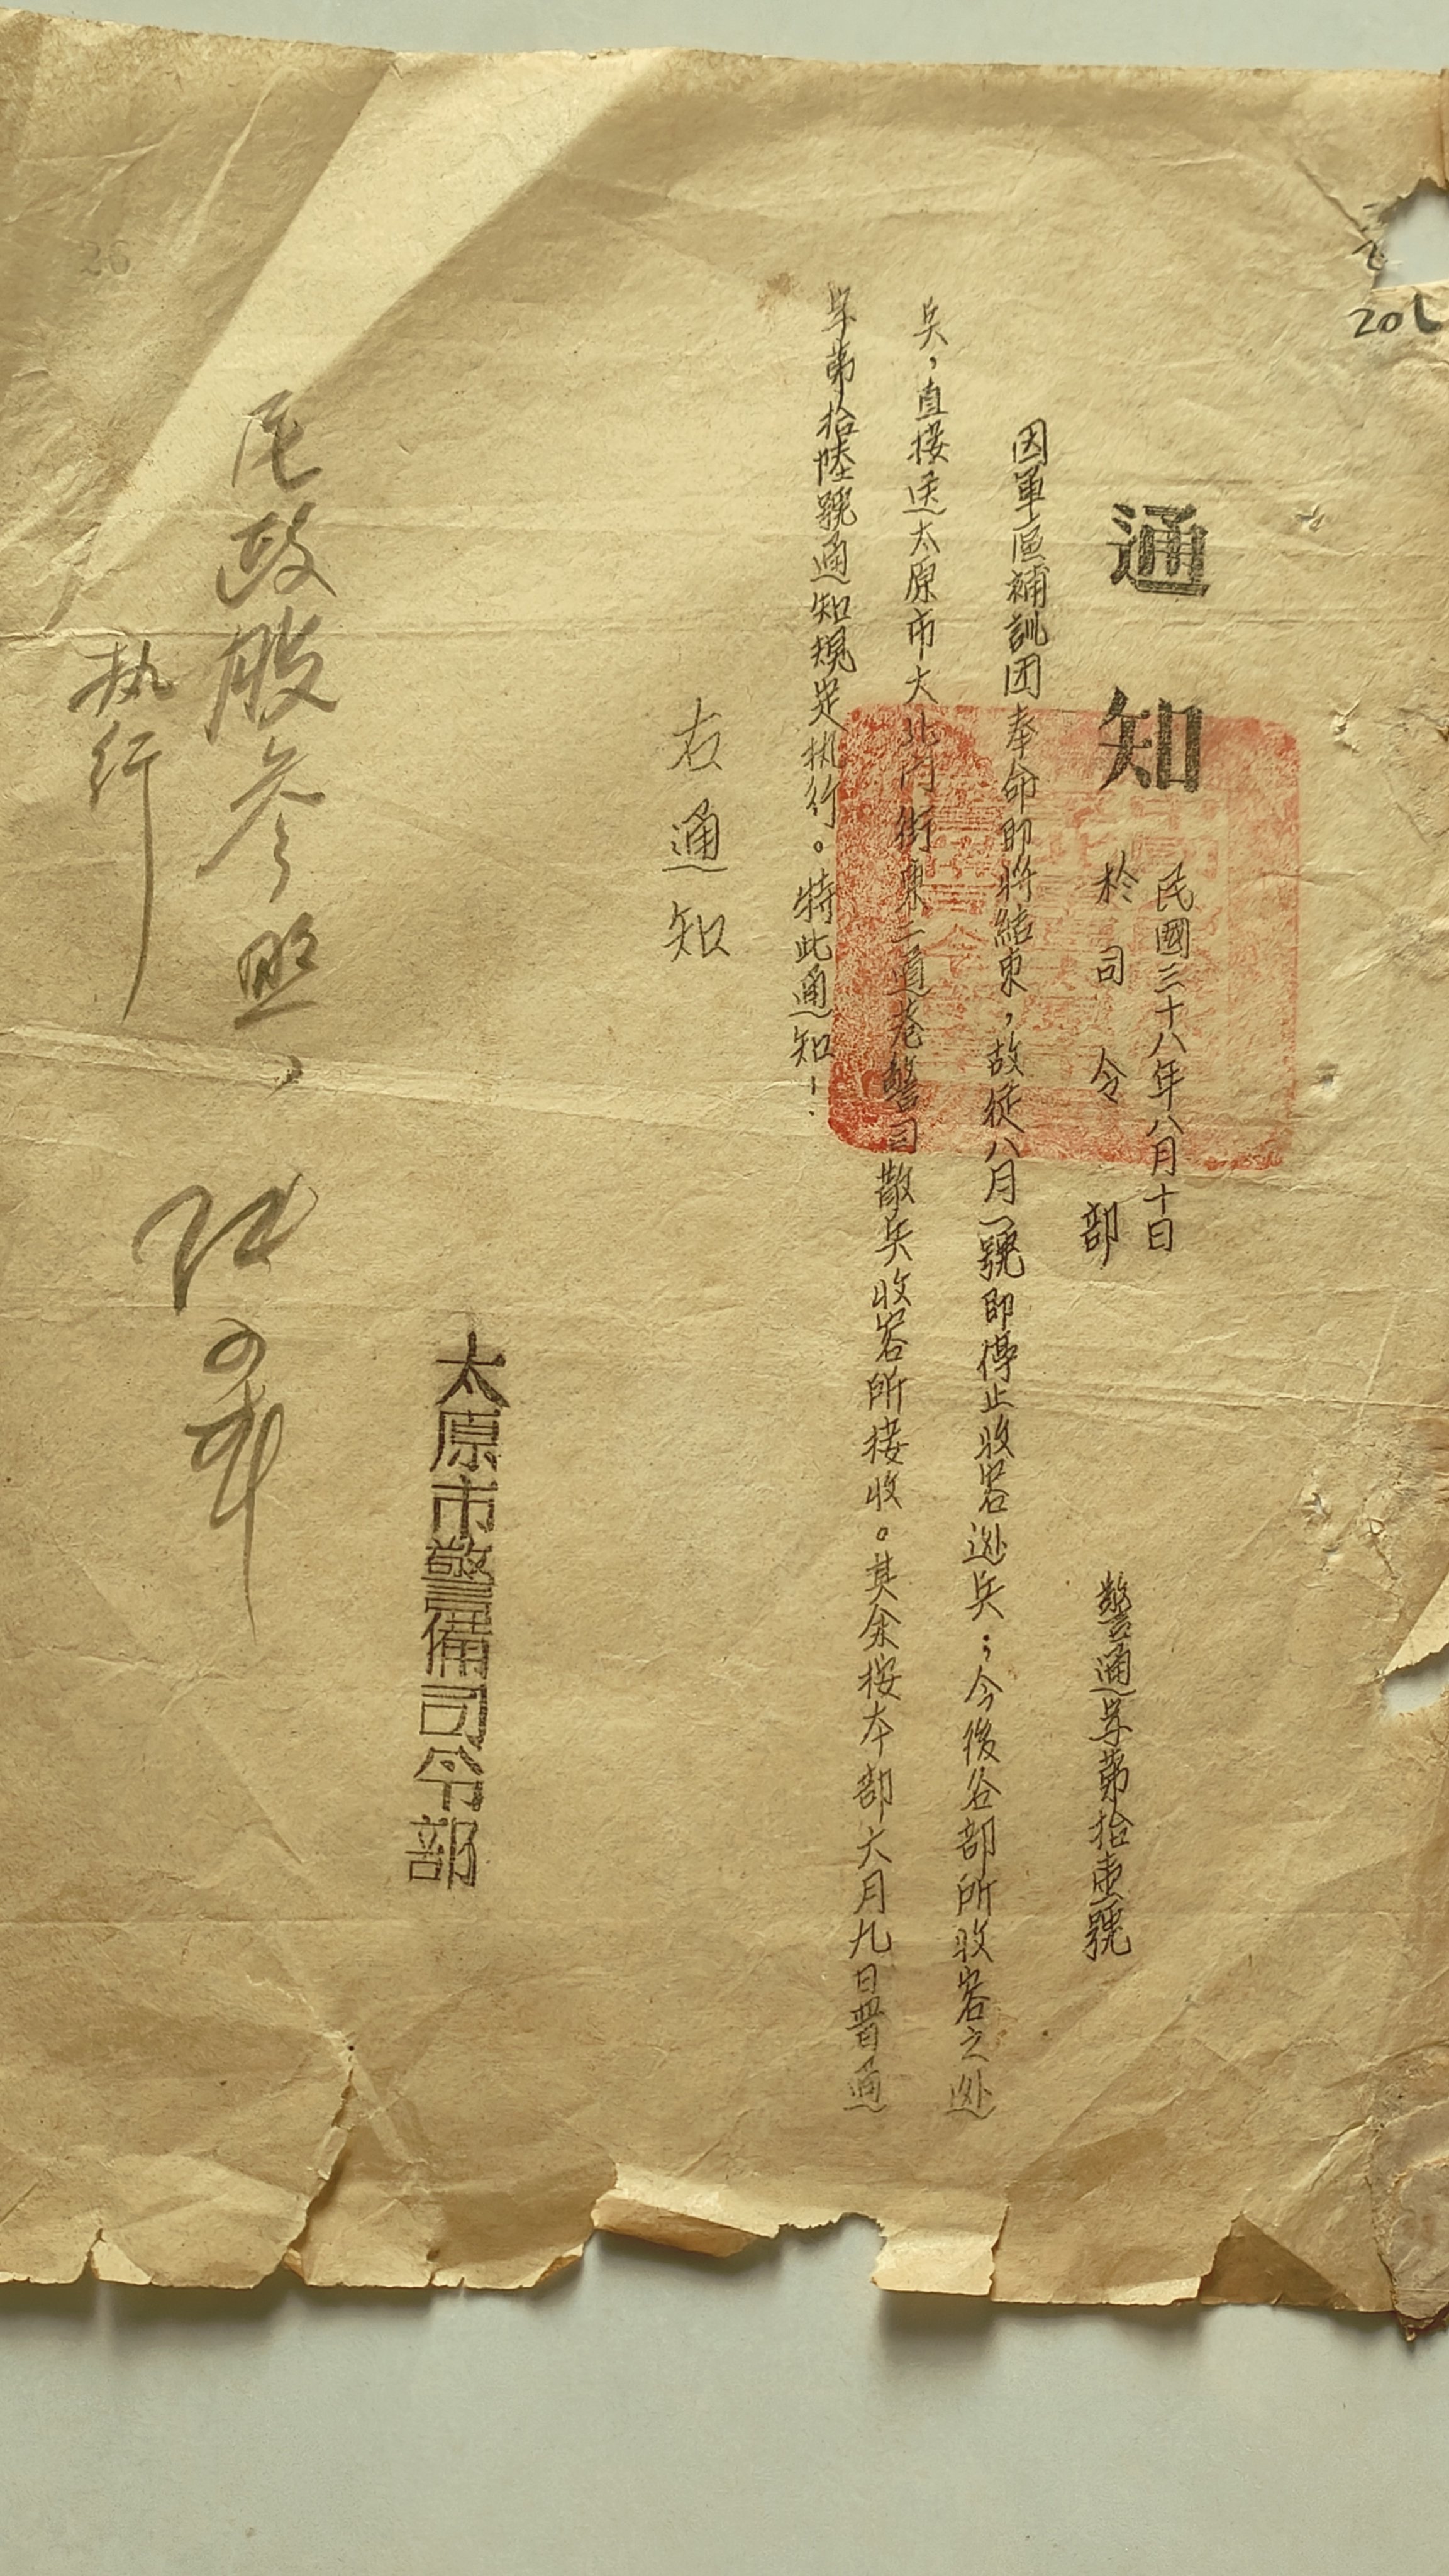 通知
民國三十八年八月十日
於司令部
警通字第拾壹號
因軍區補訓团奉命即将結束，故從八月一號即停止收容逃兵；今後各部所收容之逃
兵，直接送太原市大北门街東二道巷警司散兵收容所接收。其余按本部六月九日晋通
字第拾陸號通知規定执行。特此通知！
右通知
太原市警備司令部
民政股参照、
执行
206
26